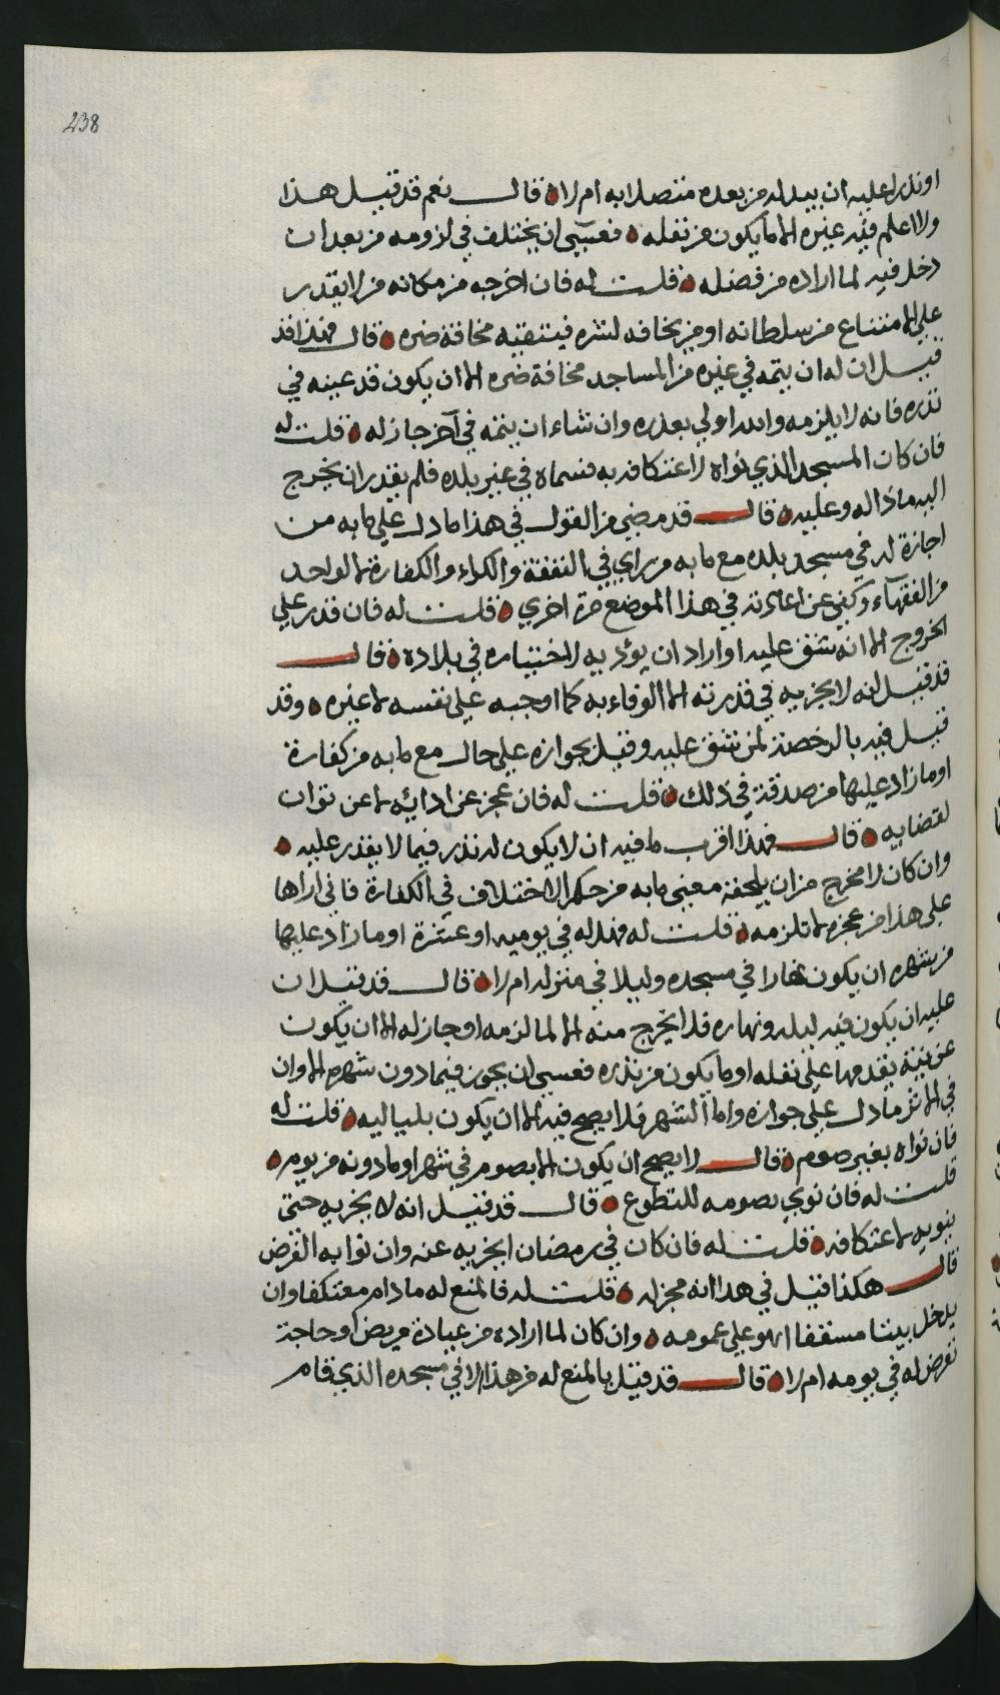 238
او نذرا عليه ان يبدله من بعده متصلا به ام لا ٥ قال نعم قد قيل هذا
ولا اعلم فيه غيره الا ما يكون من نفله ٥ فعسى ان يختلف في لزومه من بعد ان
دخل فيه لما اراده من فضله ٥ قلت له فان اخرجه من مكانه من لا يقدر
على الامتناع من سلطانه او من يخافه لشره فيتقيه مخافة ضره ٥ قال فهذا قد
قيل ان له ان يتمه في غيره من المساجد مخافة ضره الا ان يكون قد عينه في
نذره فانه لا يلزمه والله اولى بعذره وان شاء ان يتمه في آخر جاز له ٥ قلت له
فان كان المسجد الذي نواه لاعتكافه به فسماه في غير بلده فلم يقدر ان يخرج
اليه ماذا له وعليه ٥ قال قد مضى من القول في هذا ما دل على ما به من
اجازة له في مسجد بلده مع ما به من راي في النفقة والكراء والكفارة لا لواحد
من الفقهآء وكفى عن اعادته في هذا الموضع مرة اخرى ٥ قلت له فان قدر على
الخروج الا انه شق عليه او اراد ان يؤديه لاختياره في بلاده ٥ قال
قد قيل انه لا يجزيه في قدرته الا الوفاء به كما اوجبه على نفسه لا غيره ٥ وقد
قيل فيه بالرخصة لمن شق عليه وقيل بجوازه على حال مع ما به من كفارة
او ما زاد عليها من صدقة في ذلك ٥ قلت له فان عجز عن ادائه لا عن توان
لقضايه ٥ قال فهذا اقرب ما فيه ان لا يكون له نذر فيما لا يقدر عليه ٥
وان كان لا مخرج من ان يلحقه معنى ما به من حكم الاختلاف في الكفارة فاني اراها
على هذا من عجزه لا تلزمه ٥ قلت له فهل له في يوميه او عشرة او ما زاد عليها
من شهره ان يكون نهارا في مسجده وليلا في منزله ام لا ٥ قال قد قيل ان
عليه ان يكون فيه ليله ونهاره فلا يخرج منه الا لما لزمه او جاز له الا ان يكون
عن نية يقدمها على نفله او ما يكون من نذره فعسى ان يجوز فيما دون شهره الا وان
في الاثر ما دل على جوازه واما الشهر فلا يصح فيه الا ان يكون بلياليه ٥ قلت له
فان نواه بغير صوم ٥ قال لا يصح ان يكون الا بصوم في شهر او ما دونه من يوم ٥
قلت له فان نوى بصومه للتطوع ٥ قال قد قيل انه لا يجزيه حتى
ينويه لاعتكافه ٥ قلت له فان كان في رمضان ايجزيه عنه وان نوا به الفرض
قال هكذا قيل في هذا انه مجز له ٥ قلت له فالمنع له ما دام معتكفا وان
يدخل بيتا مسقفا اهو على عمومه ٥ وان كان لما اراده من عيادة مريض او حاجة
تعرض له في يومه ام لا ٥ قال قد قيل بالمنع له من هذا الا في مسجده الذي قام